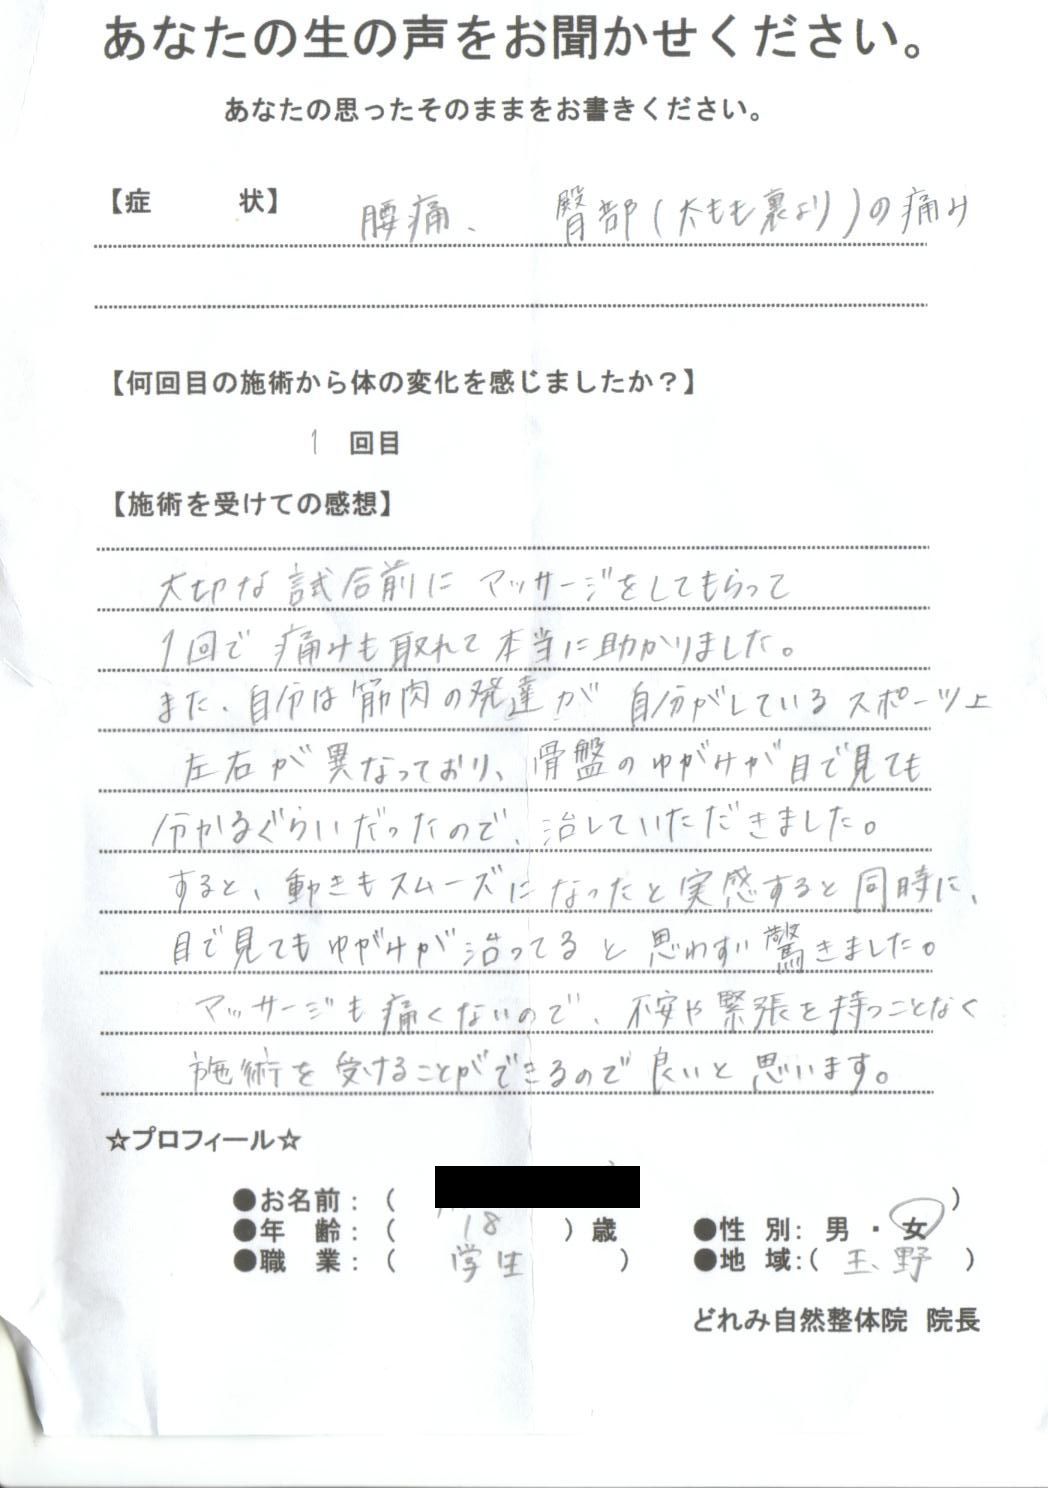 あなたの生の声をお聞かせください。
あなたの思ったそのままをお書きください。
【症　　状】 腰痛、 臀部(太もも裏より)の痛み
【何回目の施術から体の変化を感じましたか？】
1 回目
【施術を受けての感想】
大切な試合前に マッサージをしてもらって
1回で 痛みも取れて本当に助かりました。
また、自分は筋肉の発達が 自分がしているスポーツ上
左右が異なっており、骨盤のゆがみが目で見ても
分かるぐらいだったので、治していただきました。
すると、動きもスムーズになったと実感すると同時に、
目で見てもゆがみが治ってると思わず驚きました。
マッサージも痛くないので、不安や緊張を持つことなく
施術を受けることができるので良いと思います。
☆プロフィール☆
●お名前：（　　　）
●年　齢：（ 18 ）歳 ●性 別：男 ・ 女
●職　業：（ 学生 ） ●地 域：（ 玉野 ）
どれみ自然整体院 院長